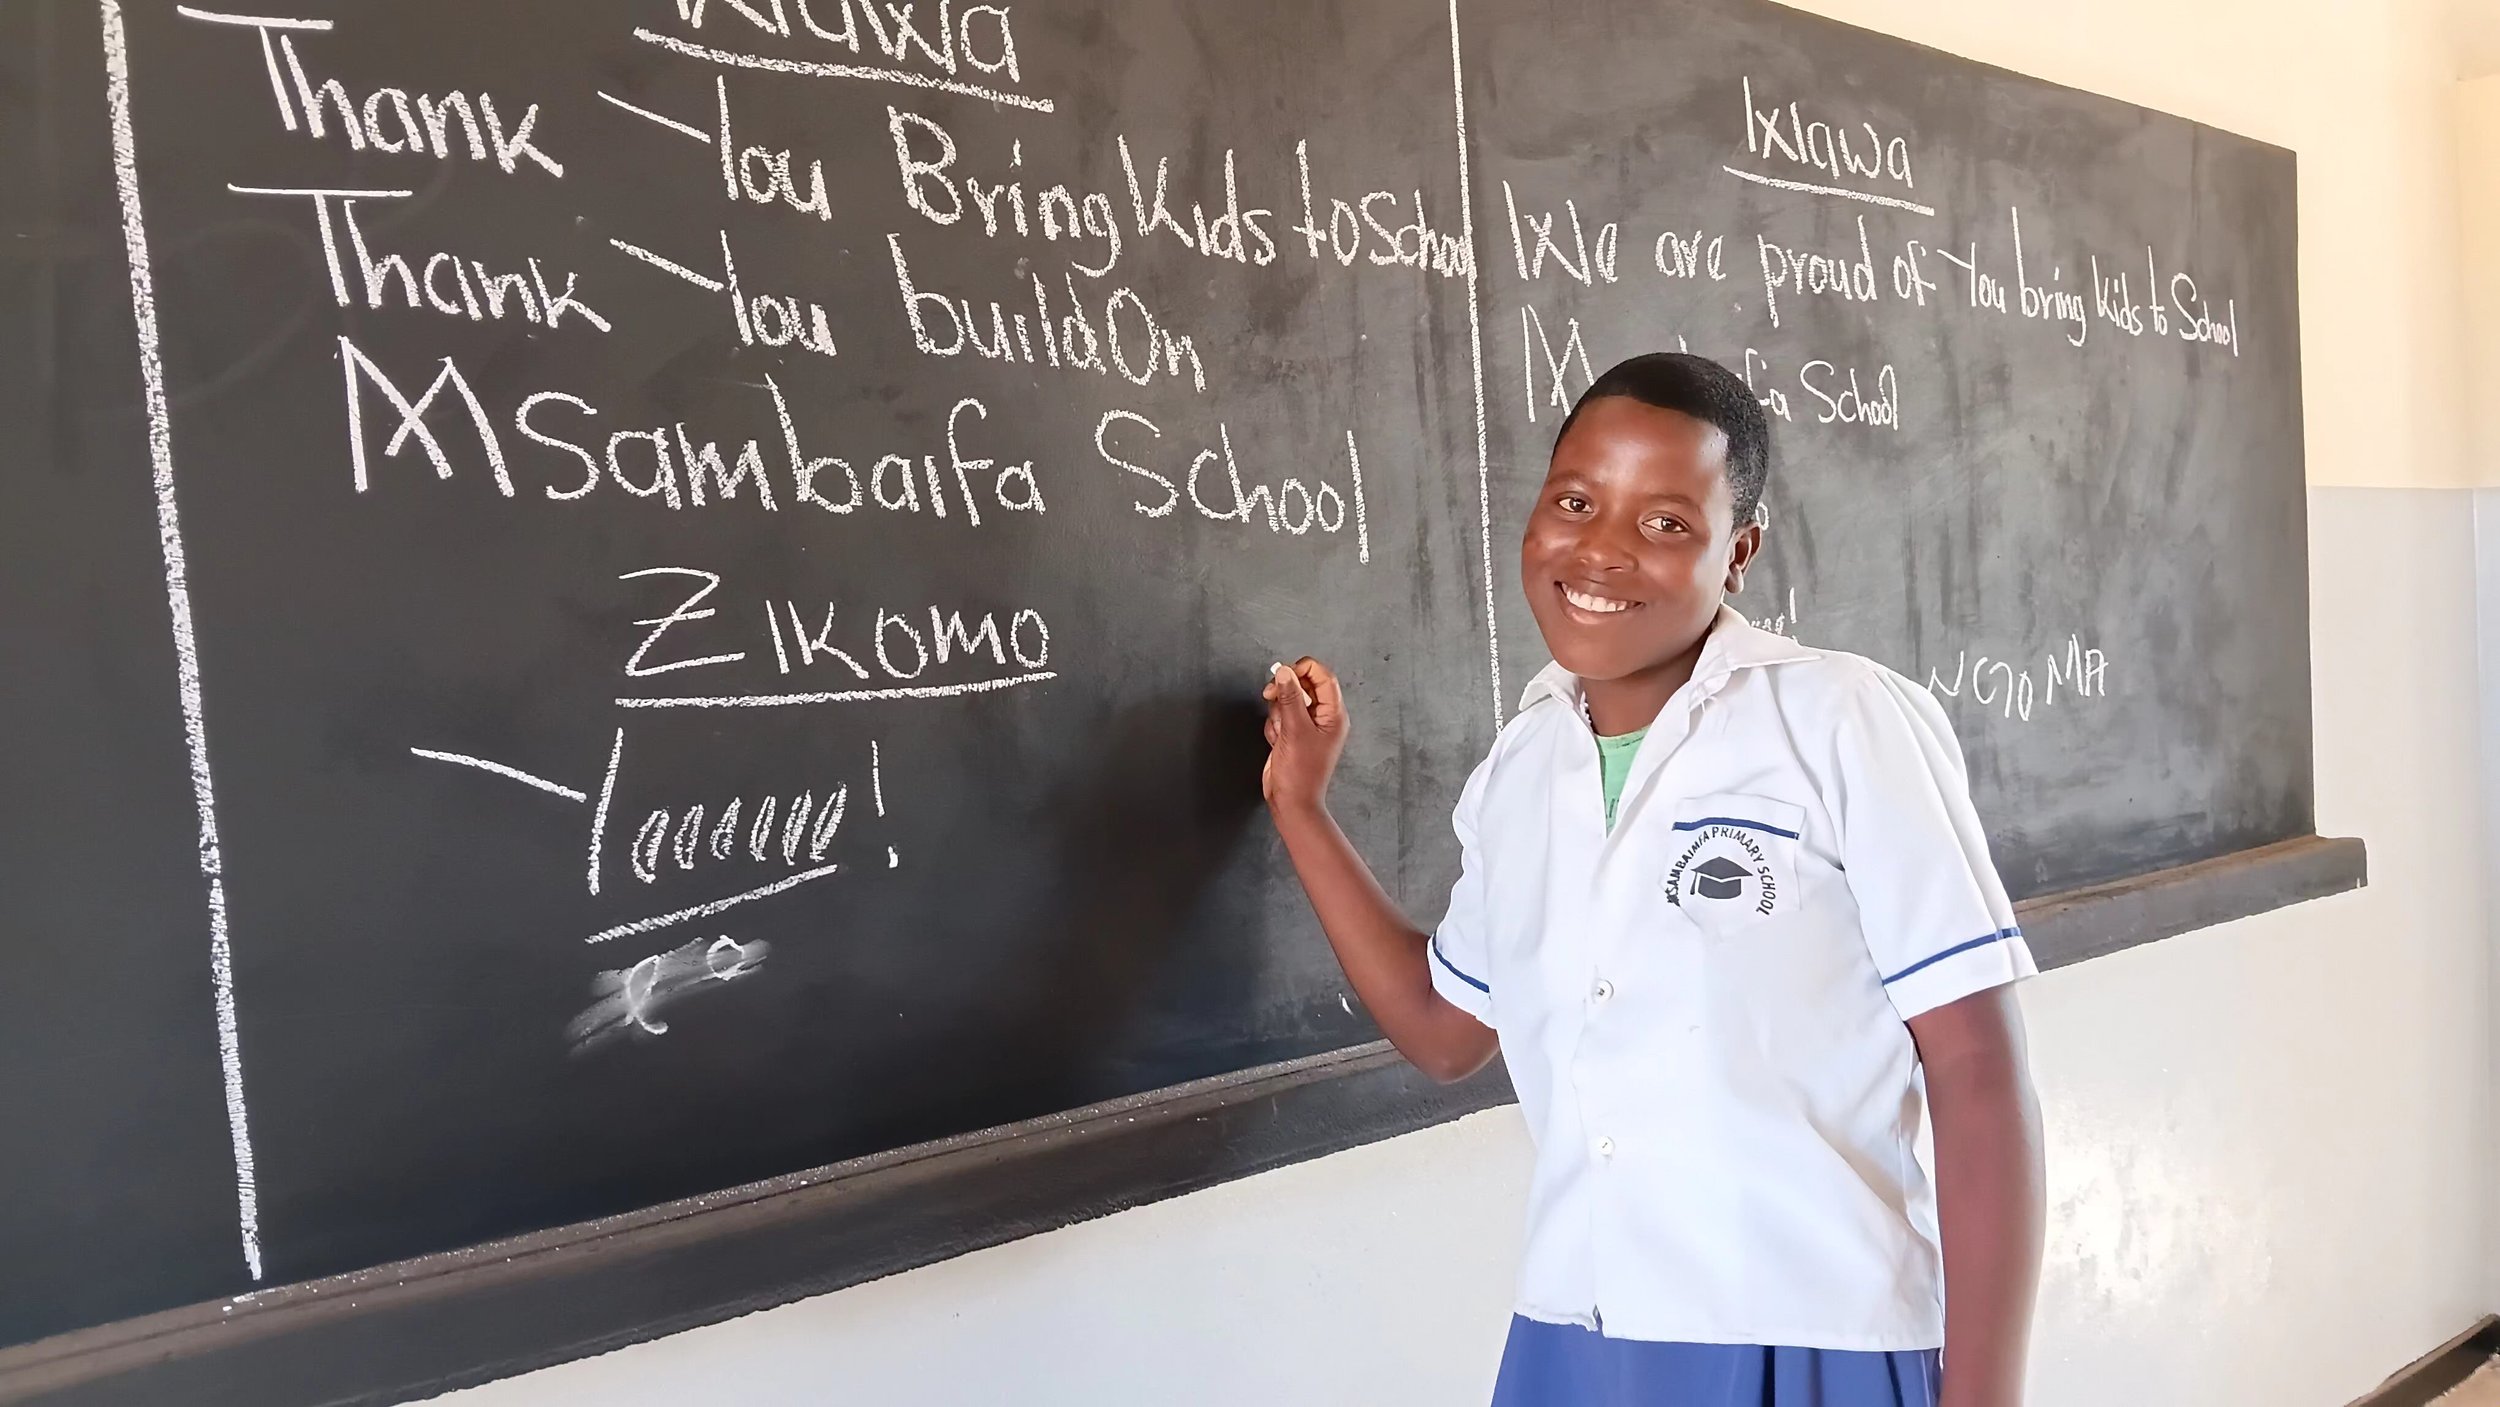 Wawa
Thank You Bring Kids to School
Thank You buildOn
Msambaifa School
ZIKOMO
Wawa
We are proud of You bring Kids to School
School
NGOMA
MSAMBAIMFA PRIMARY SCHOOL